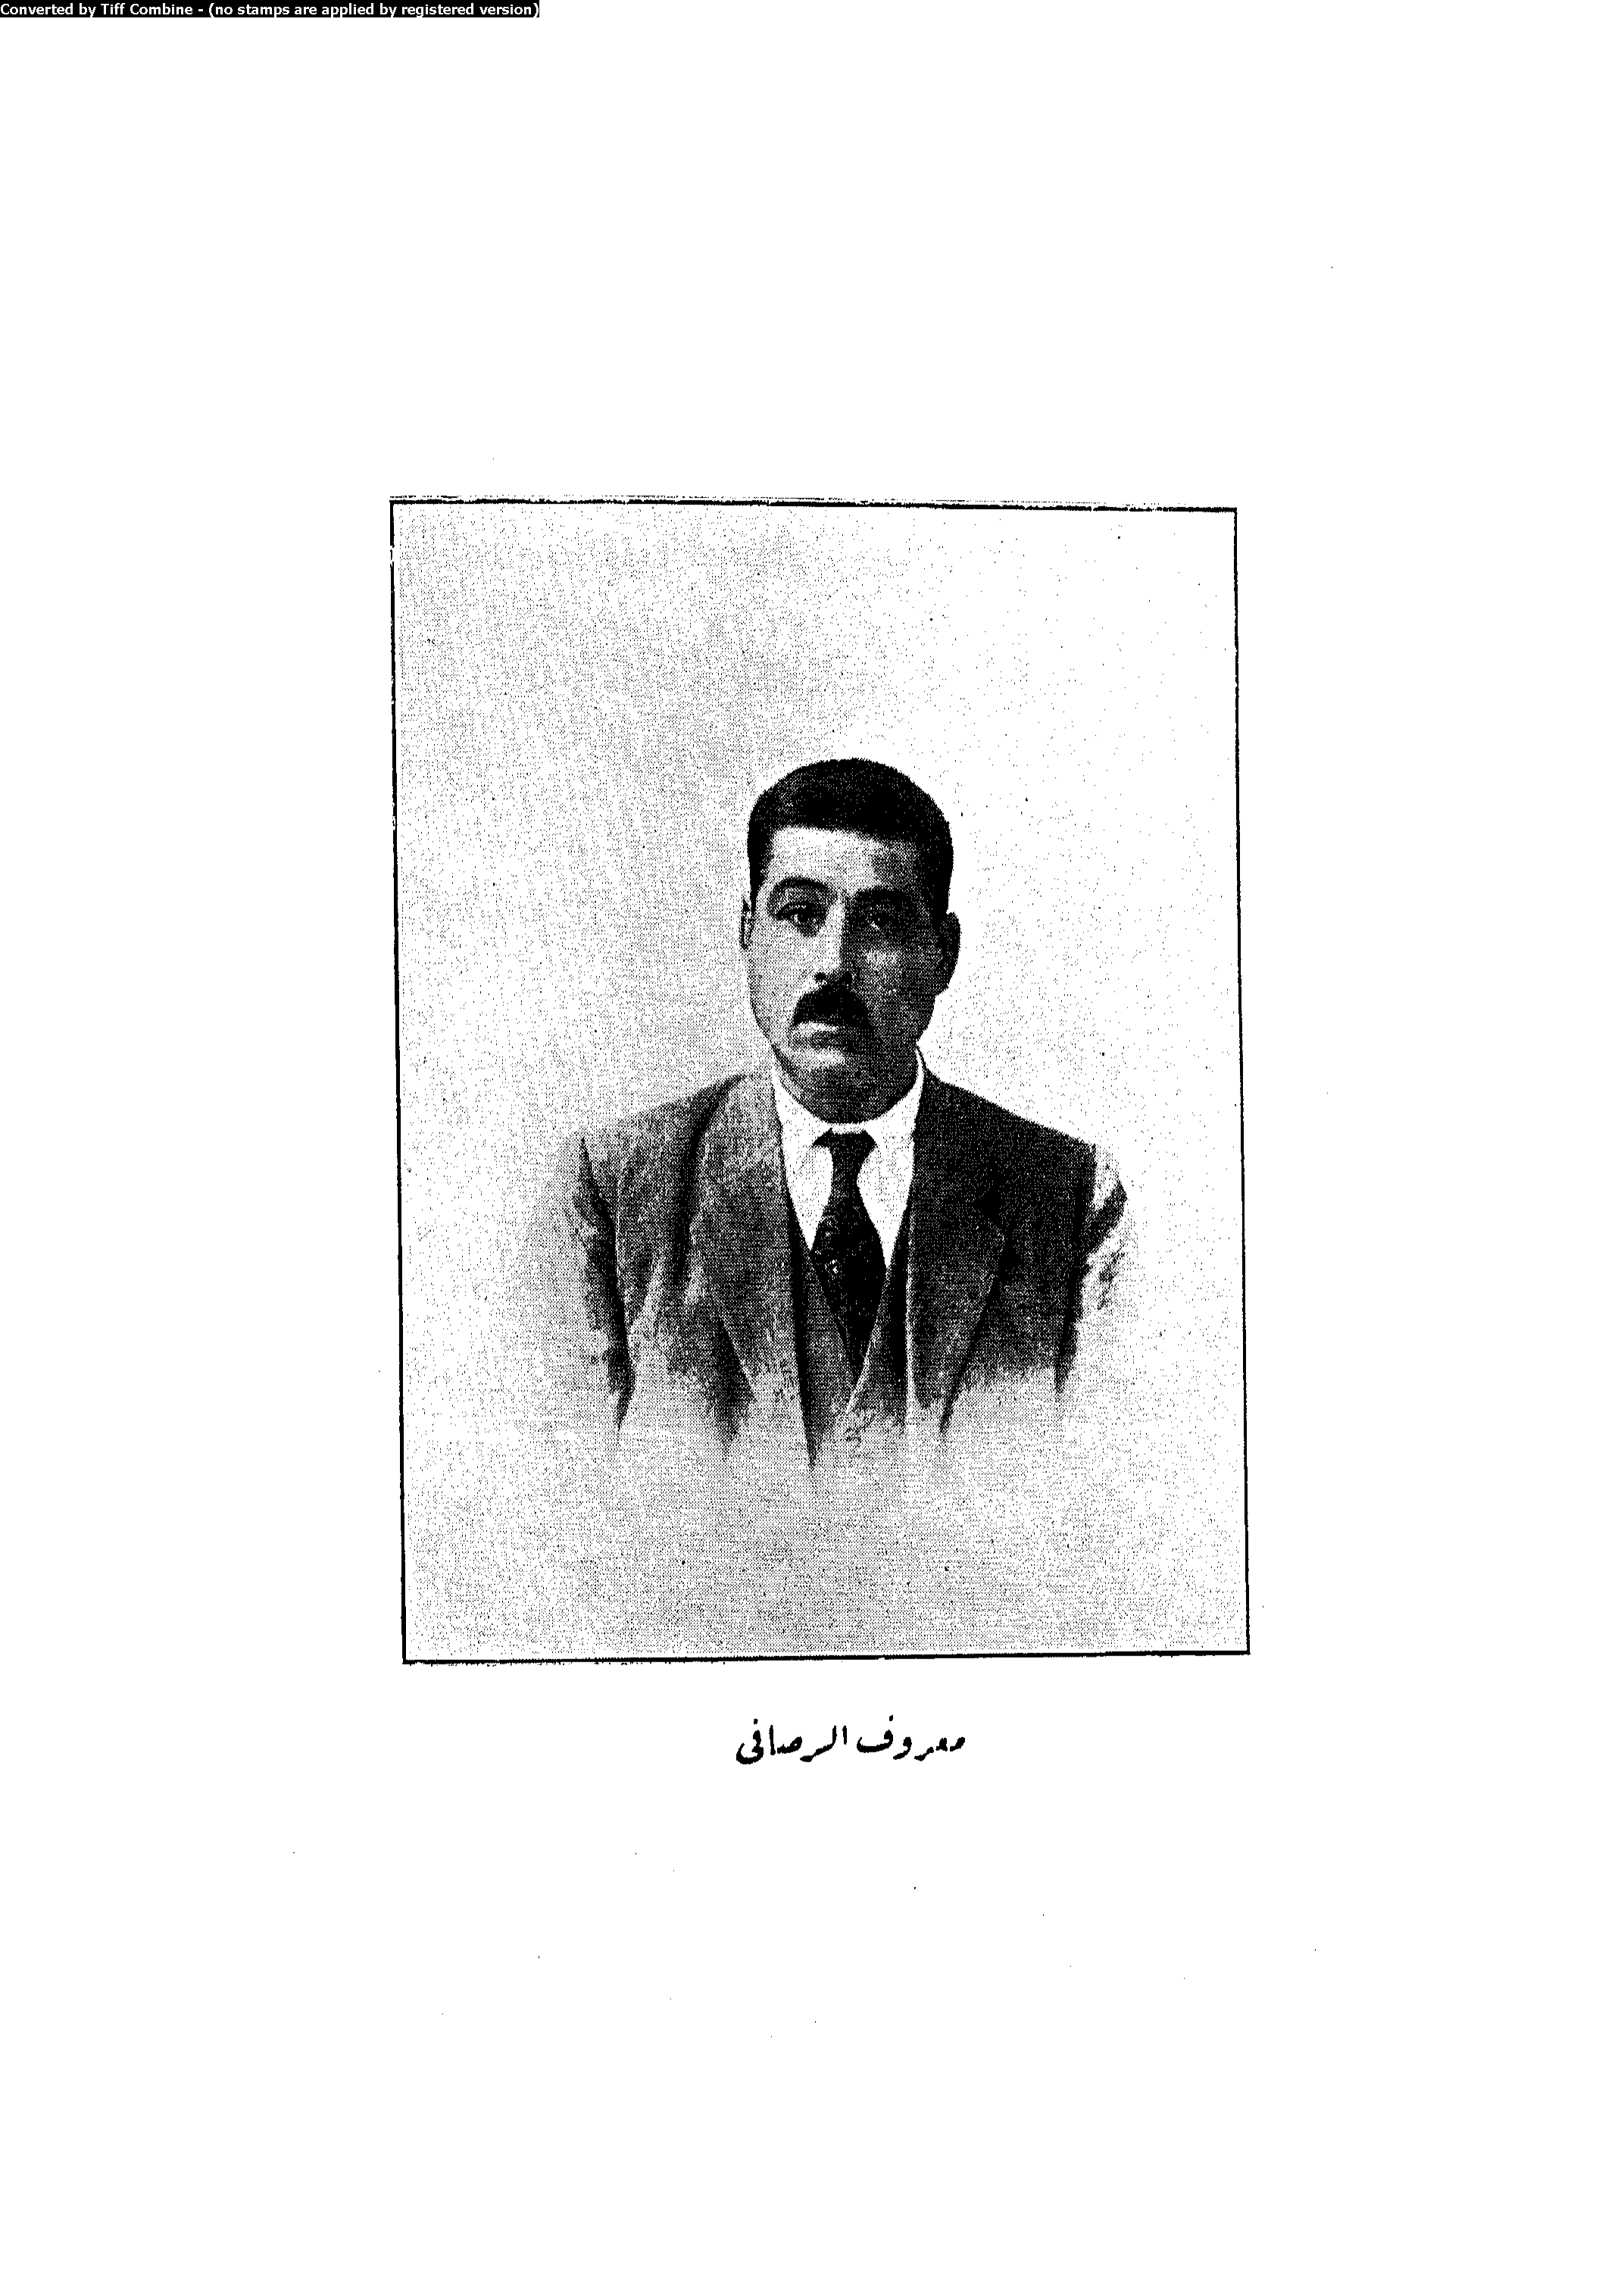 Converted by Tiff Combine - (no stamps are applied by registered version)
معروف الرصافى